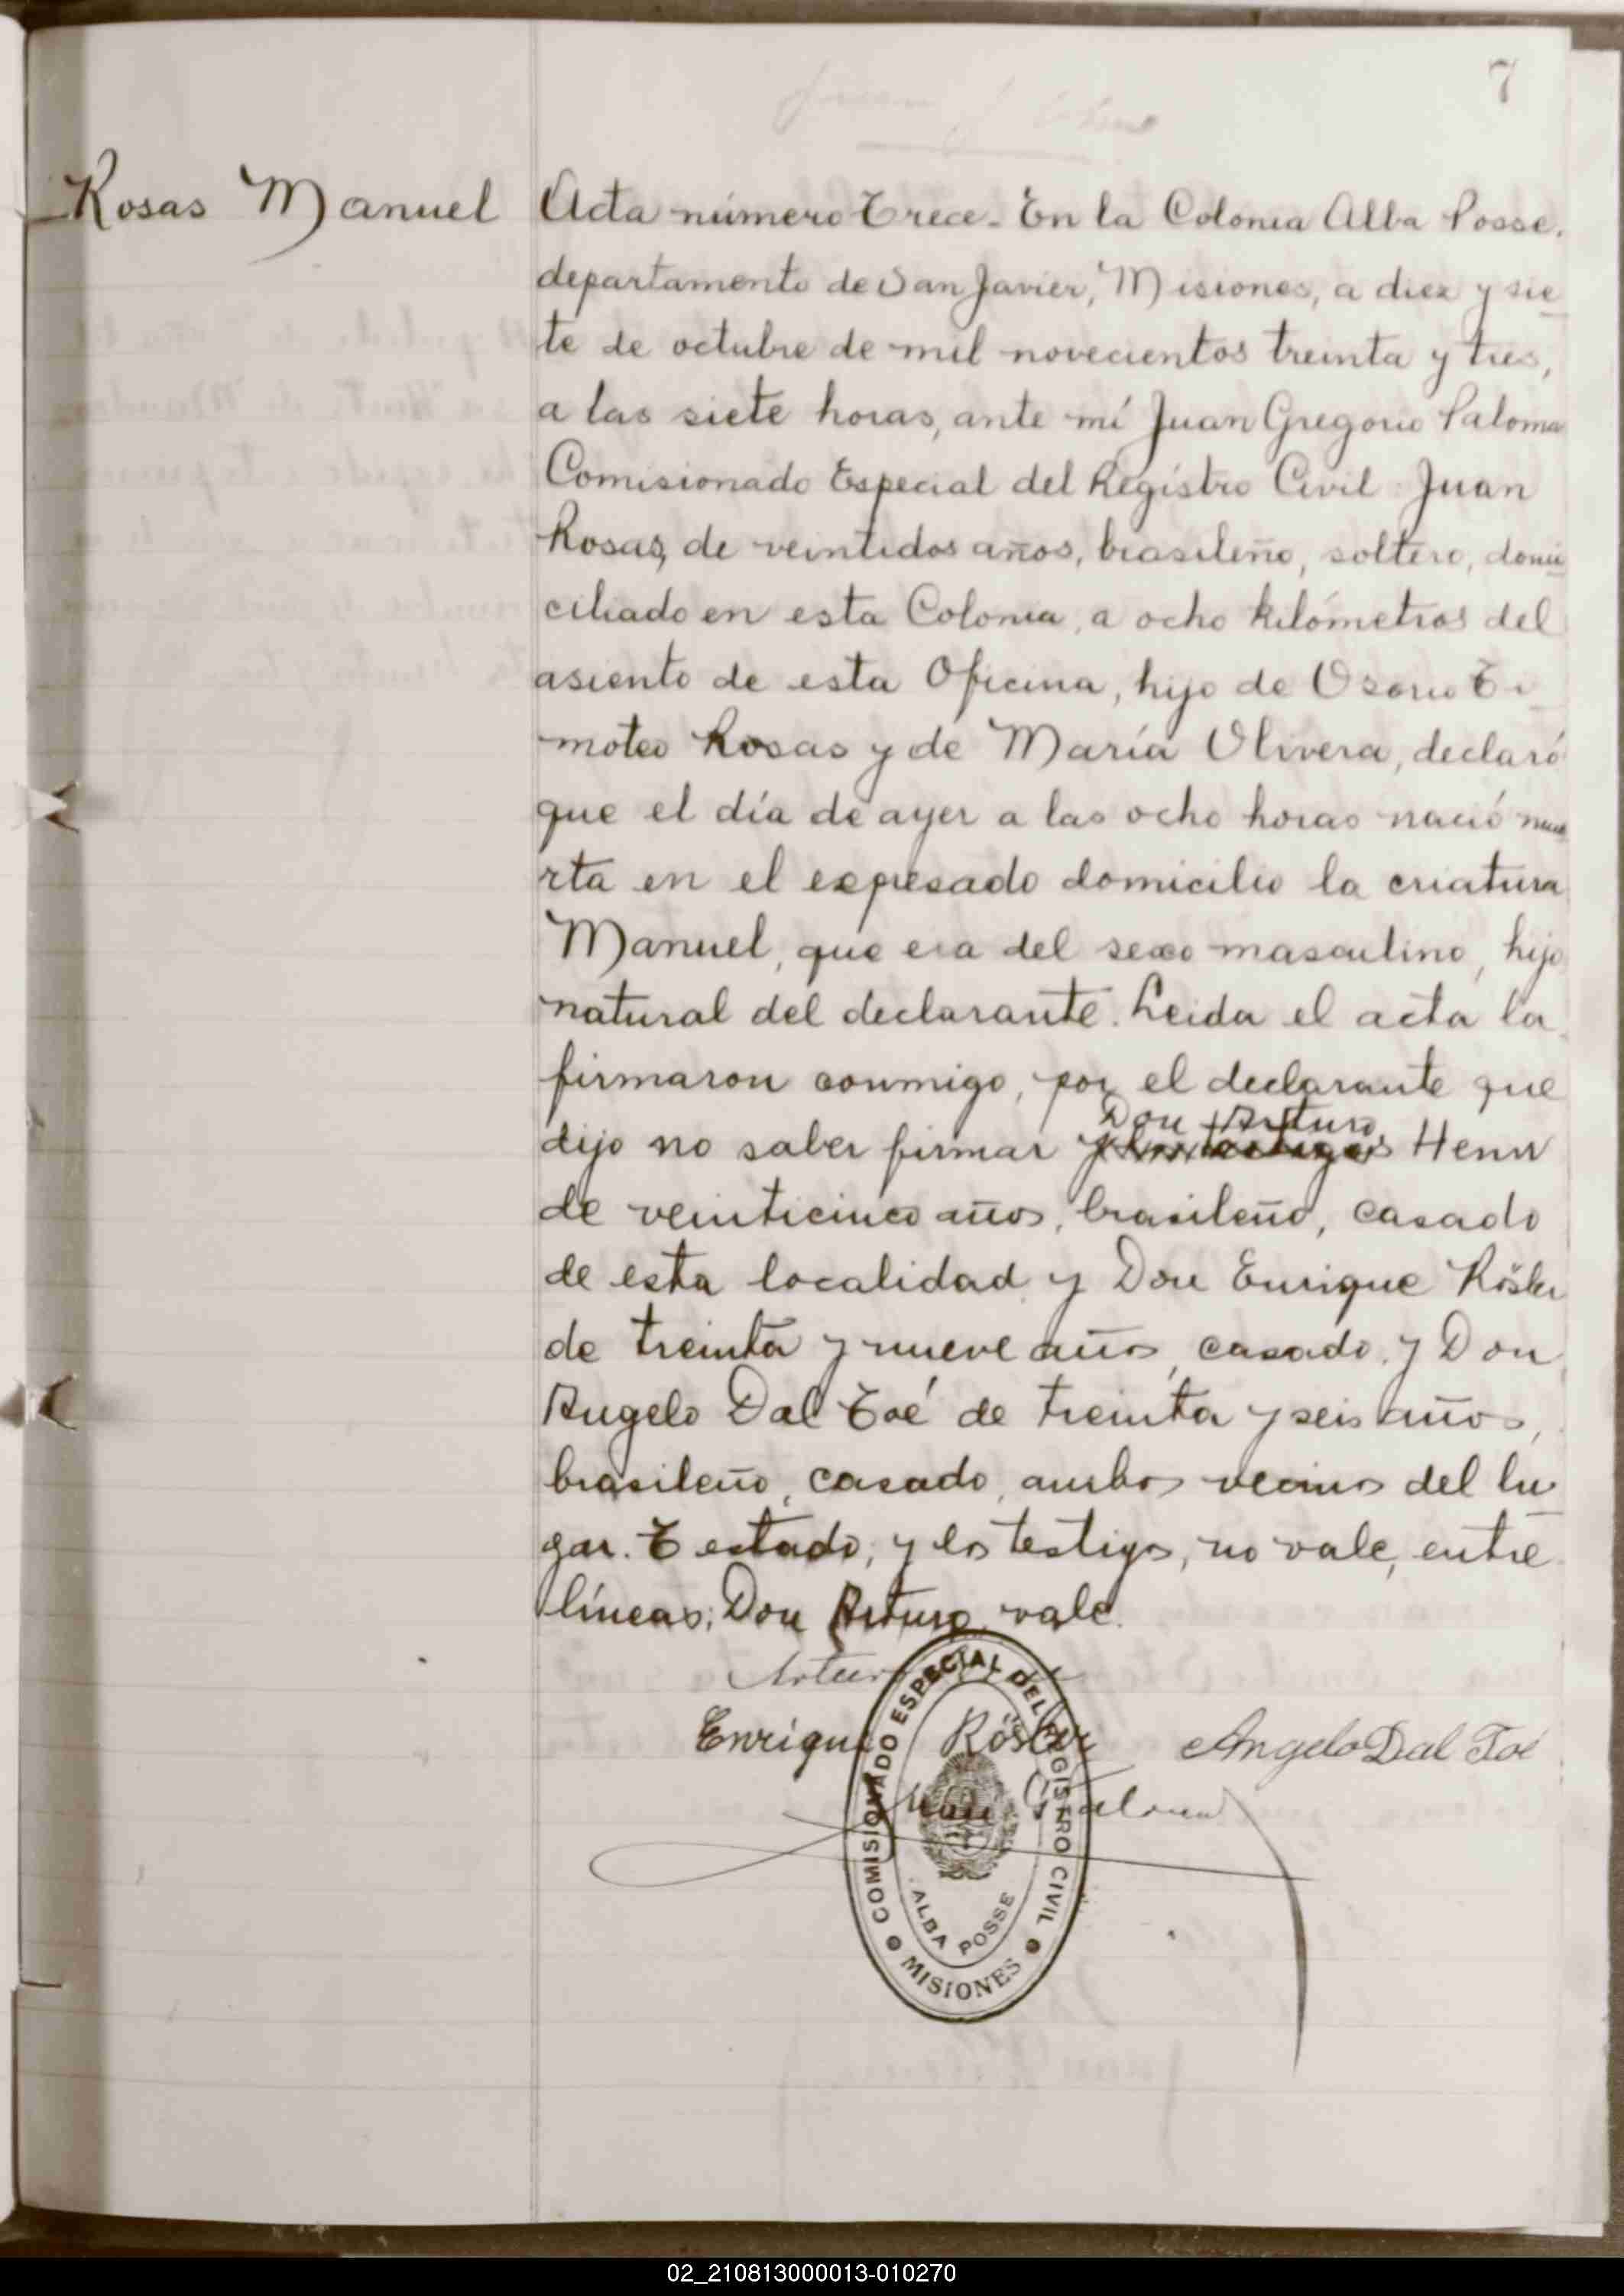 7
Rosas Manuel
Acta número Trece. En la Colonia Alba Posse,
departamento de San Javier, Misiones, a diez y sie
te de octubre de mil novecientos treinta y tres,
a las siete horas, ante mí Juan Gregorio Paloma
Comisionado Especial del Registro Civil Juan
Rosas, de veintidos años, brasileño, soltero, domi
ciliado en esta Colonia, a ocho kilómetros del
asiento de esta Oficina, hijo de Osorio Ti
moteo Rosas y de María Olivera, declaró
que el día de ayer a las ocho horas nació mue
rta en el expresado domicilio la criatura
Manuel, que era del sexo masculino, hijo
natural del declarante. Leida el acta la
firmaron conmigo, por el declarante que
Don Arturo
dijo no saber firmar y los testigos Henn
de veinticinco años, brasileño, casado
de esta localidad y Don Enrique Rösler
de treinta y nueve años, casado, y Don
Angelo Dal Toé de treinta y seis años,
brasileño, casado, ambos vecinos del lu
gar. Testado; y los testigos, no vale, entre
líneas; Don Arturo, vale.
Arturo
Enrique Rösler Angelo Dal Toé
Juan G Paloma
COMISIONADO ESPECIAL DEL REGISTRO CIVIL
ALBA POSSE
MISIONES
02_210813000013-010270